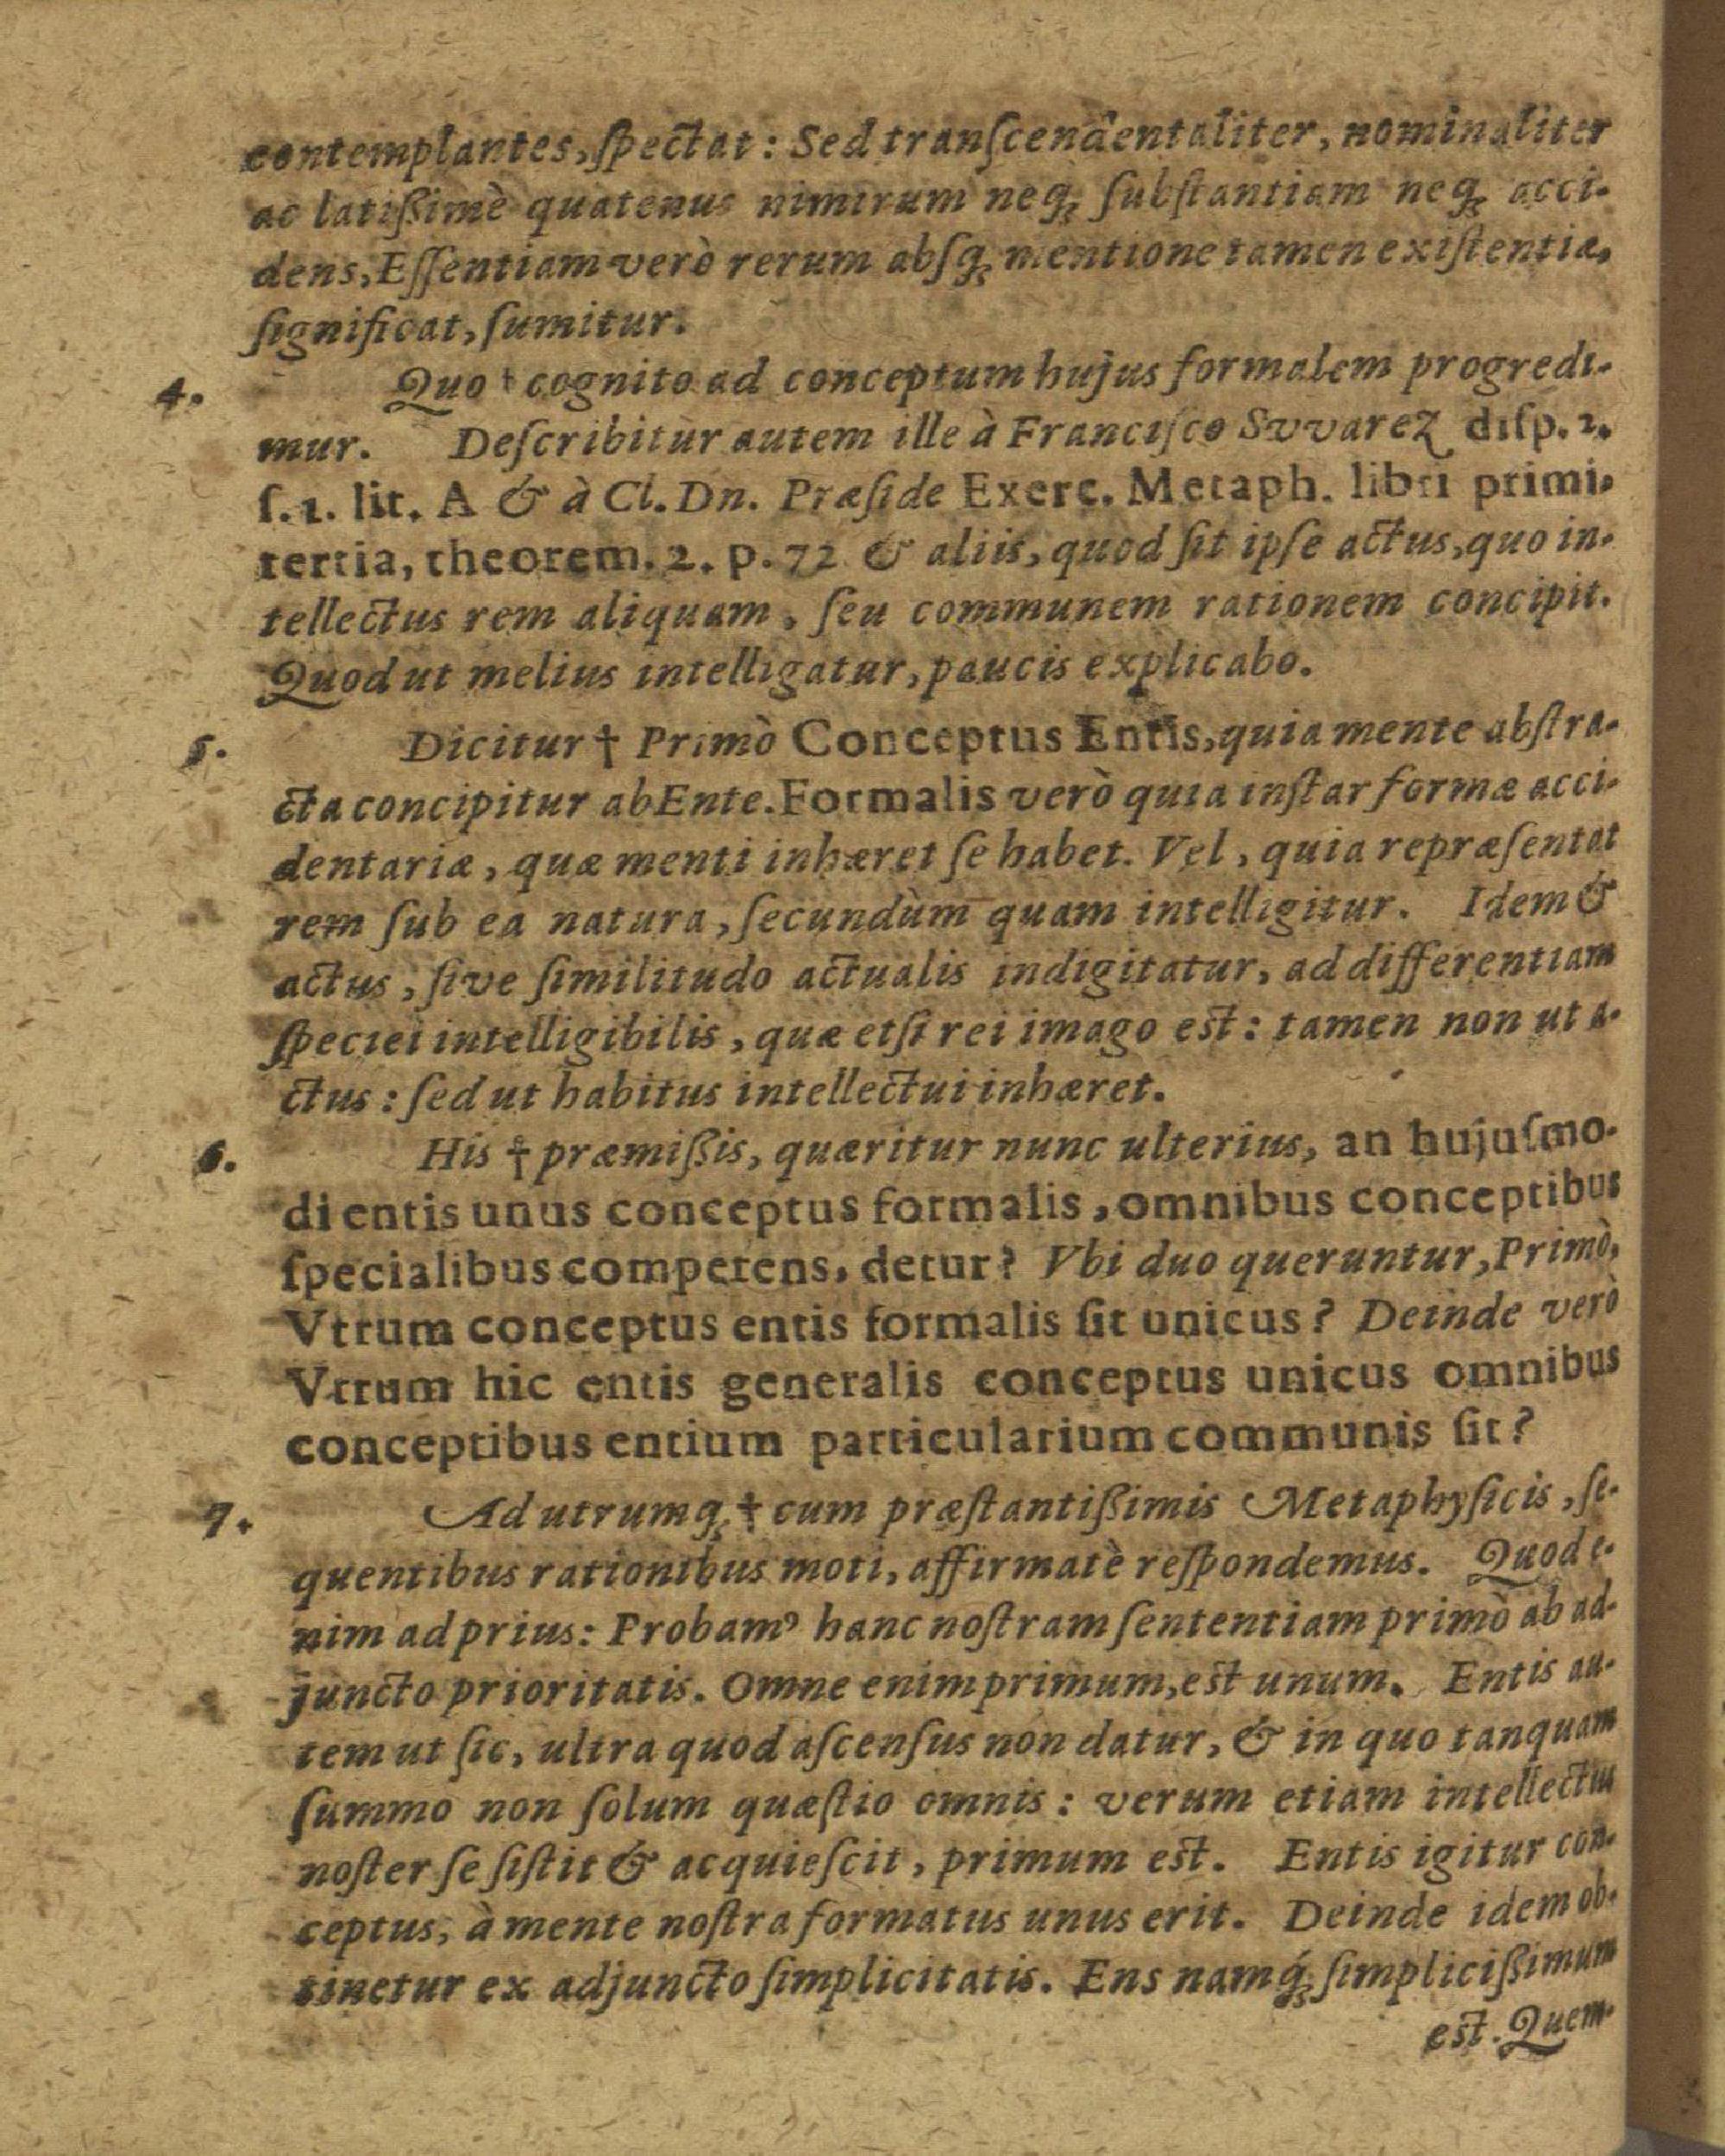 contemplantes, ſpectat: Sed tranſcendentaliter, nominaliter
ac latißimè quatenus nimirum neq; ſubſtantiam neq; acci-
dens, Eſſentiam verò rerum abſq; mentione tamen exiſtentiæ,
ſignificat, ſumitur.
4. Quo † cognito ad conceptum hujus formalem progredi-
mur. Deſcribitur autem ille à Franciſco Svvarez diſp. 2.
ſ. 1. lit. A & à Cl. Dn. Præſide Exerc. Metaph. libri primi
tertia, theorem. 2. p. 72 & aliis, quod ſit ipſe actus, quo in-
tellectus rem aliquam, ſeu communem rationem concipit.
Quod ut melius intelligatur, paucis explicabo.
5. Dicitur † Primò Conceptus Entis, quia mente abſtra-
cta concipitur ab Ente. Formalis verò quia inſtar formæ acci-
dentariæ, quæ menti inhæret ſe habet. Vel, quia repræſentat
rem ſub ea natura, ſecundùm quam intelligitur. Idem &
actus, ſive ſimilitudo actualis indigitatur, ad differentiam
ſpeciei intelligibilis, quæ etſi rei imago est: tamen non ut a-
ctus: ſed ut habitus intellectui inhæret.
6. His † præmißis, quæritur nunc ulterius, an hujuſmo-
di entis unus conceptus formalis, omnibus conceptibus
ſpecialibus competens, detur? Vbi duo queruntur, Primò,
Vtrum conceptus entis formalis ſit unicus? Deinde verò
Vtrum hic entis generalis conceptus unicus omnibus
conceptibus entium particularium communis ſit?
7. Ad utrumq; † cum præſtantißimis Metaphyſicis, ſe-
quentibus rationibus moti, affirmatè reſpondemus. Quod e-
nim ad prius: Probamꝰ hanc noſtram ſententiam primò ab ad-
juncto prioritatis. Omne enim primum, est unum. Entis au-
tem ut ſic, ultra quod aſcenſus non datur, & in quo tanquam
ſummo non ſolum quæſtio omnis: verum etiam intellectus
noſter ſe ſiſtit & acquieſcit, primum est. Entis igitur con-
ceptus, à mente noſtra formatus unus erit. Deinde idem ob-
tinetur ex adjuncto ſimplicitatis. Ens namq́; ſimplicißimum
est. Quem-